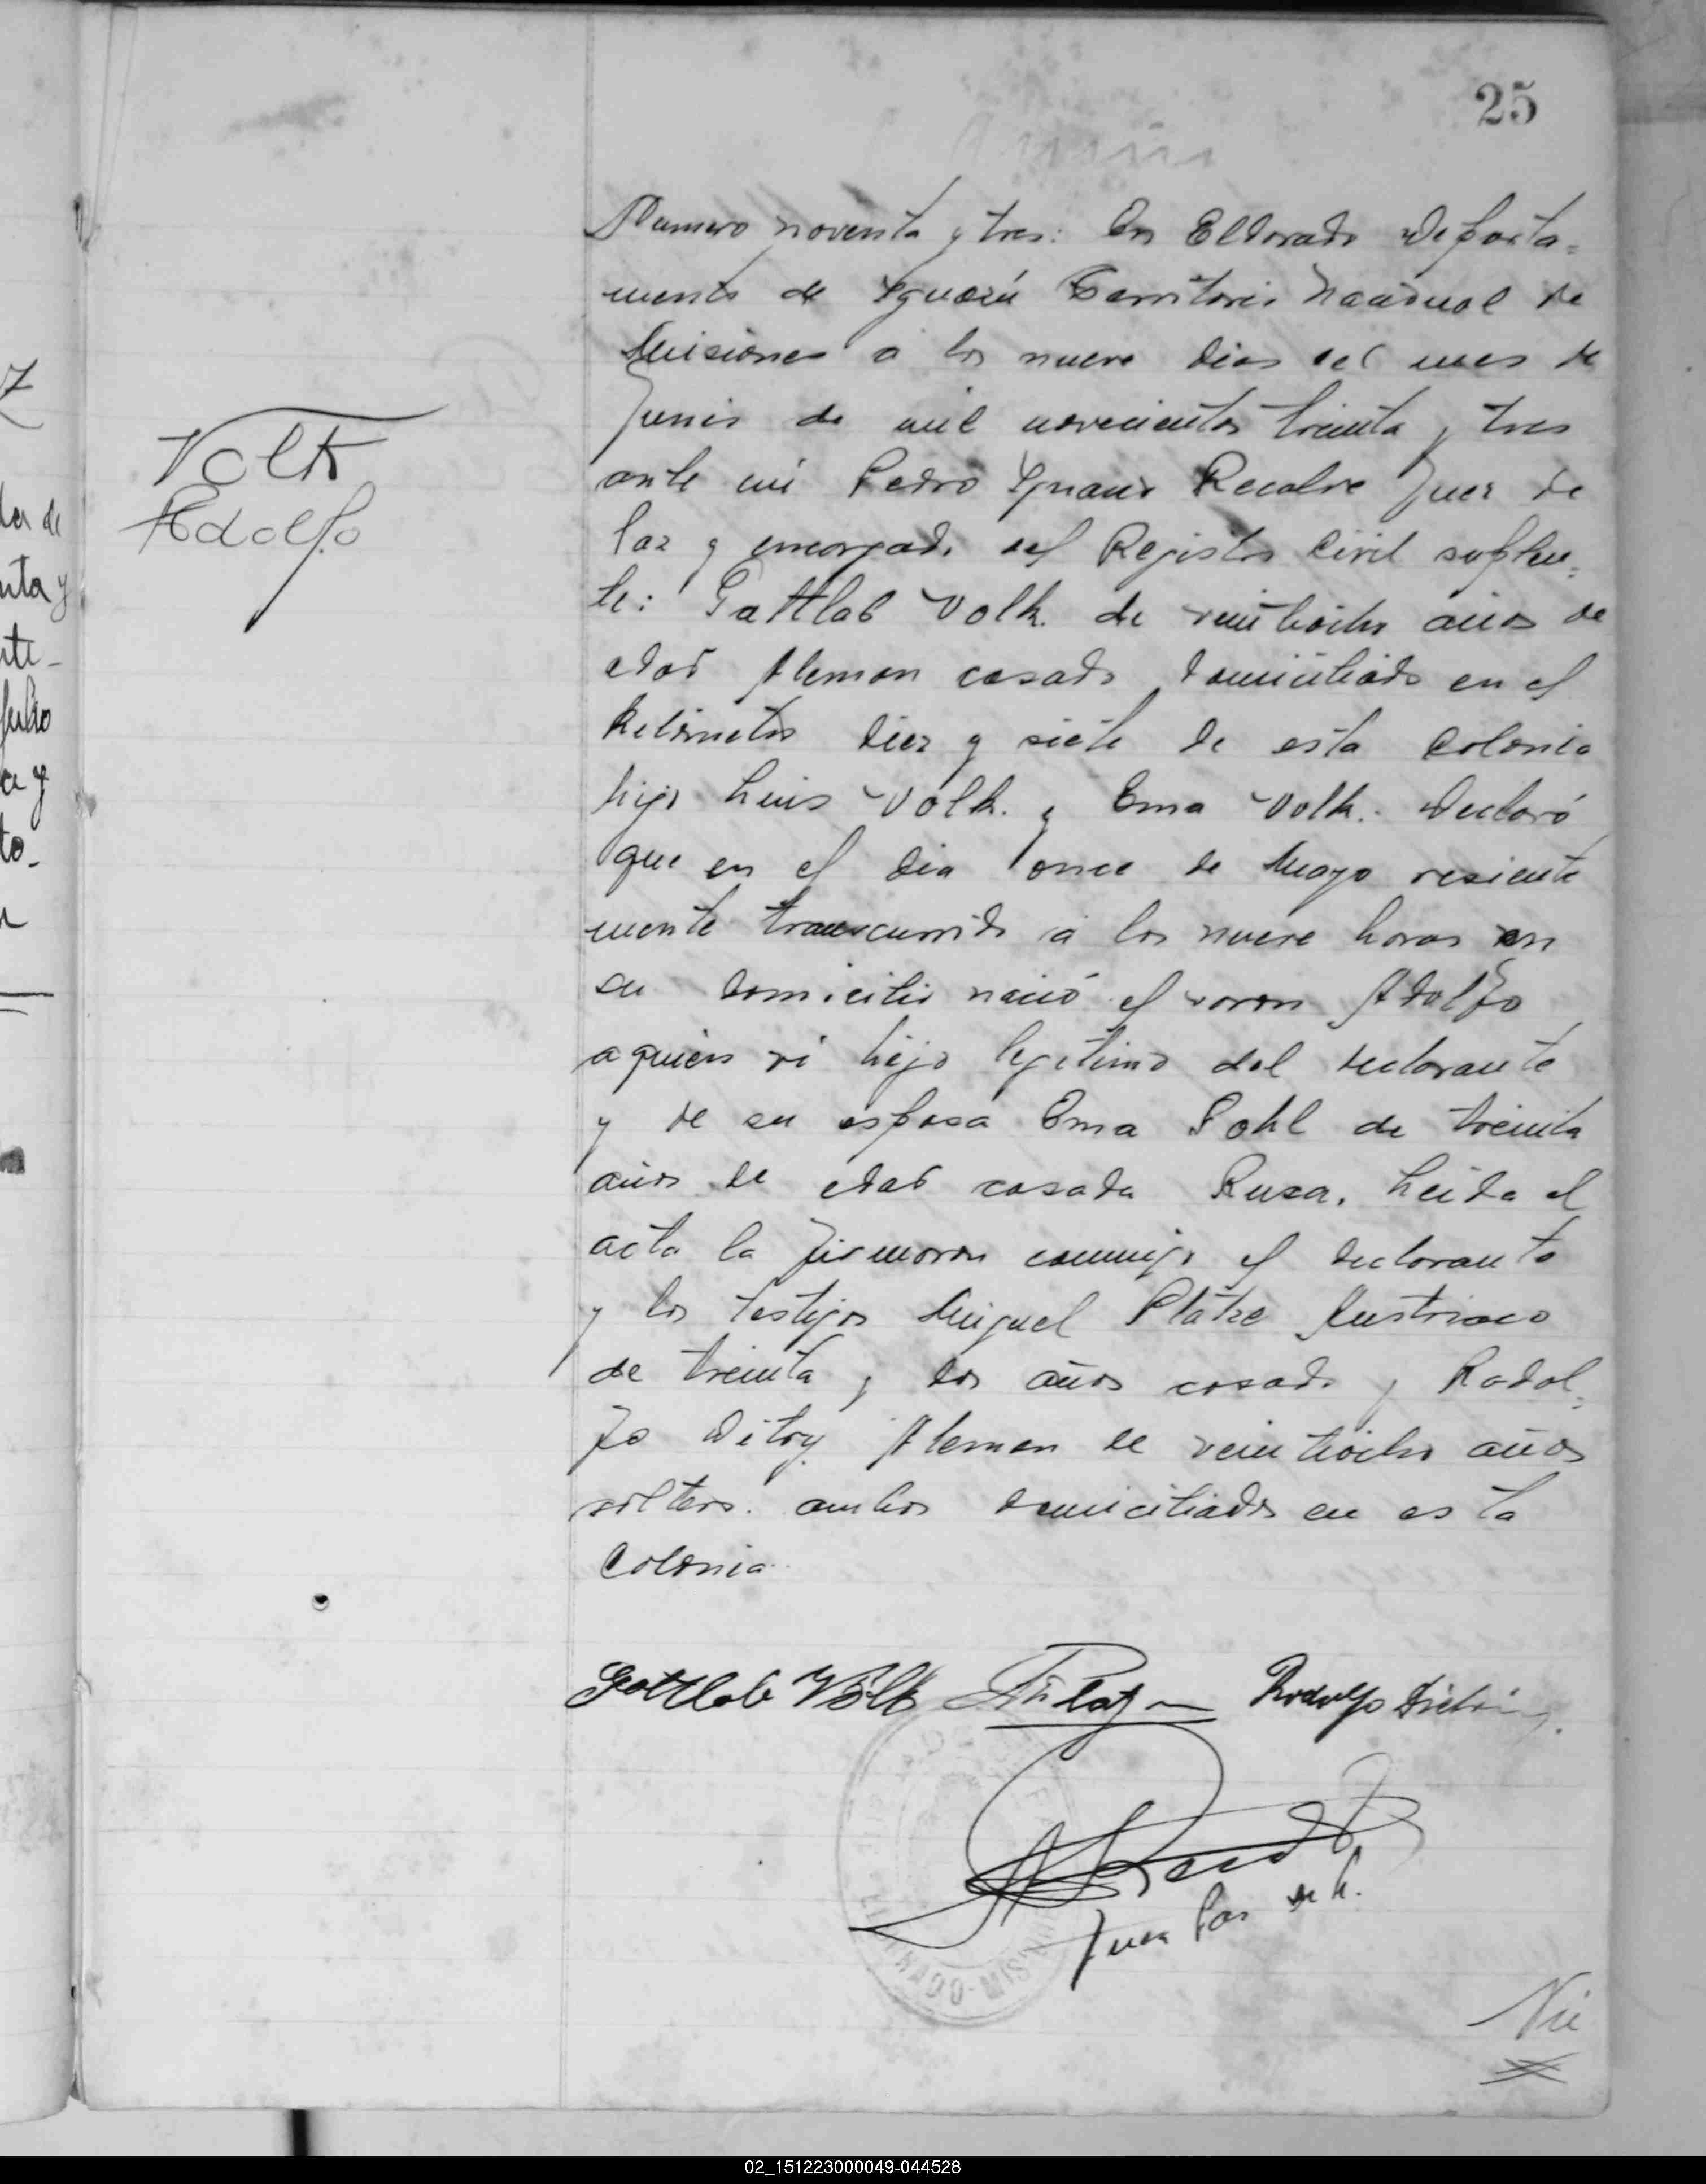 25
Volk
Adolfo
Numero noventa y tres: En Eldorado Departa=
mento de Iguazú Territorio Nacional de
Misiones a los nueve dias del mes de
Junio de mil novecientos treinta y tres
ante mi Pedro Ignacio Recalde Juez de
Paz y encargado del Registro Civil suplen=
te: Gattlab Volk. de veintiocho años de
edad Aleman casado domiciliado en el
kelometro diez y siete de esta Colonia
hijo Luis Volk. y Ema Volk. Declaró
que en el dia once de Mayo resiente
mente transcurrido a los nueve horas en
su domicilio nació el varon Adolfo
aquien vi hijo legitimo del declarante
y de su esposa Ema Pohl de treinta
años de edad casada Rusa. Leida el
acta la firmaron conmigo el declarante
y los testigos Miguel Platze Austriaco
de treinta y dos años casado y Rodol=
fo Ditry Aleman de veintiocho años
soltero. ambos domiciliados en esta
Colonia.
Gottlob Völk Rodolfo
Juez Paz
ELDORADO-MISIONES
02_151223000049-044528